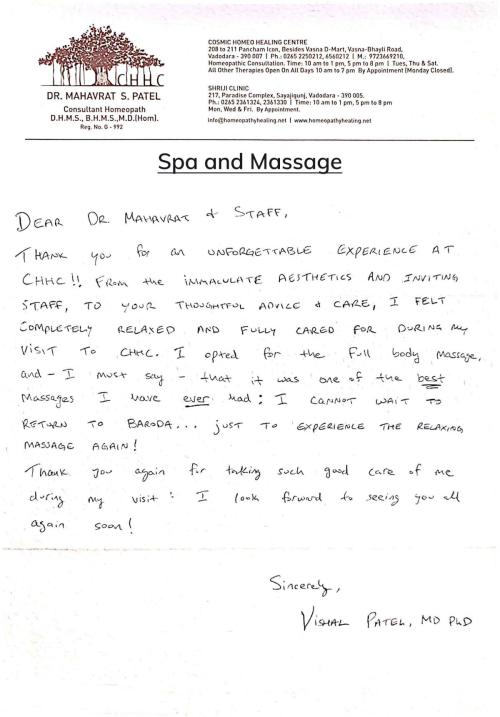 CHHC
DR. MAHAVRAT S. PATEL
Consultant Homeopath
D.H.M.S., B.H.M.S.,M.D.(Hom).
Reg. No. G - 992
COSMIC HOMEO HEALING CENTRE
208 to 211 Pancham Icon, Besides Vasna D-Mart, Vasna-Bhayli Road,
Vadodara - 390 007 | Ph.: 0265 2250212, 6560212 | M.: 9723669210,
Homeopathic Consultation. Time: 10 am to 1 pm, 5 pm to 8 pm | Tues, Thu & Sat.
All Other Therapies Open On All Days 10 am to 7 pm By Appointment (Monday Closed).
SHRIJI CLINIC
217, Paradise Complex, Sayajigunj, Vadodara - 390 005.
Ph.: 0265 2361324, 2361330 | Time: 10 am to 1 pm, 5 pm to 8 pm
Mon, Wed & Fri. By Appointment.
info@homeopathyhealing.net | www.homeopathyhealing.net
Spa and Massage
DEAR DR. MAHAVRAT & STAFF,
THANK you for an UNFORGETTABLE EXPERIENCE AT
CHHC!! FROM the IMMACULATE AESTHETICS AND INVITING
STAFF, TO YOUR THOUGHTFUL ADVICE & CARE, I FELT
COMPLETELY RELAXED AND FULLY CARED FOR DURING MY
VISIT TO CHHC. I opted for the full body massage,
and - I must say - that it was one of the best
massages I have ever had: I CANNOT WAIT TO
RETURN TO BARODA... just TO EXPERIENCE THE RELAXING
MASSAGE AGAIN!
Thank you again for taking such good care of me
during my visit: I look forward to seeing you all
again soon!
Sincerely,
VISHAL PATEL, MD PhD